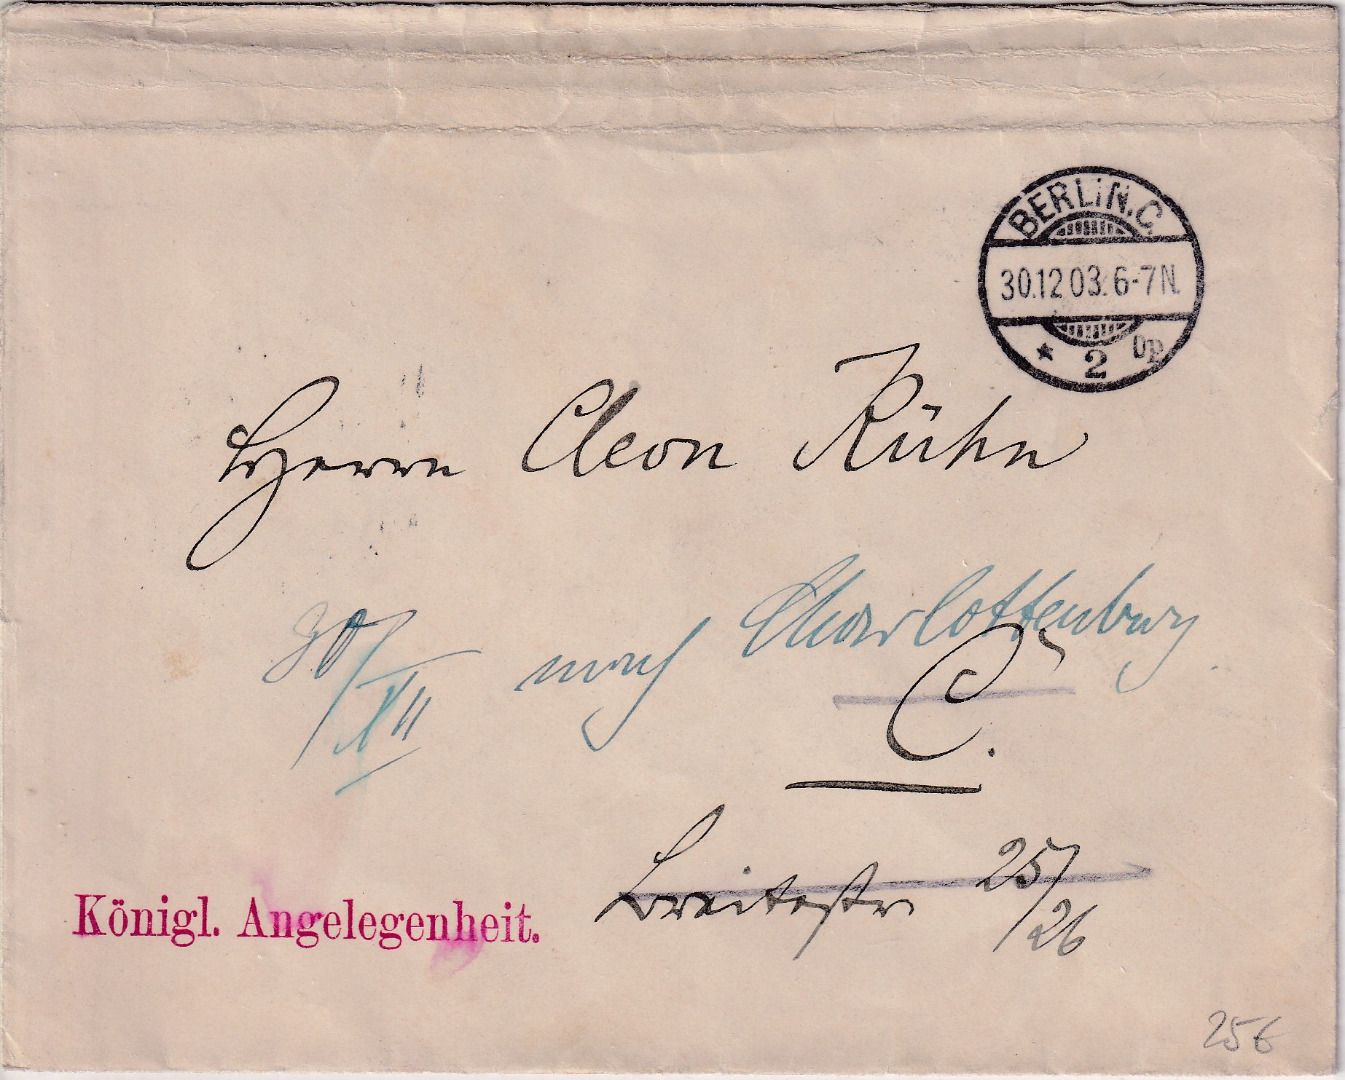 BERLIN.C.
30.12 03. 6-7N.
* 2 Op
Herrn Cleon Kühn
30/XII nach Charlottenburg.
C.
Breitestr 25/26
Königl. Angelegenheit.
25€